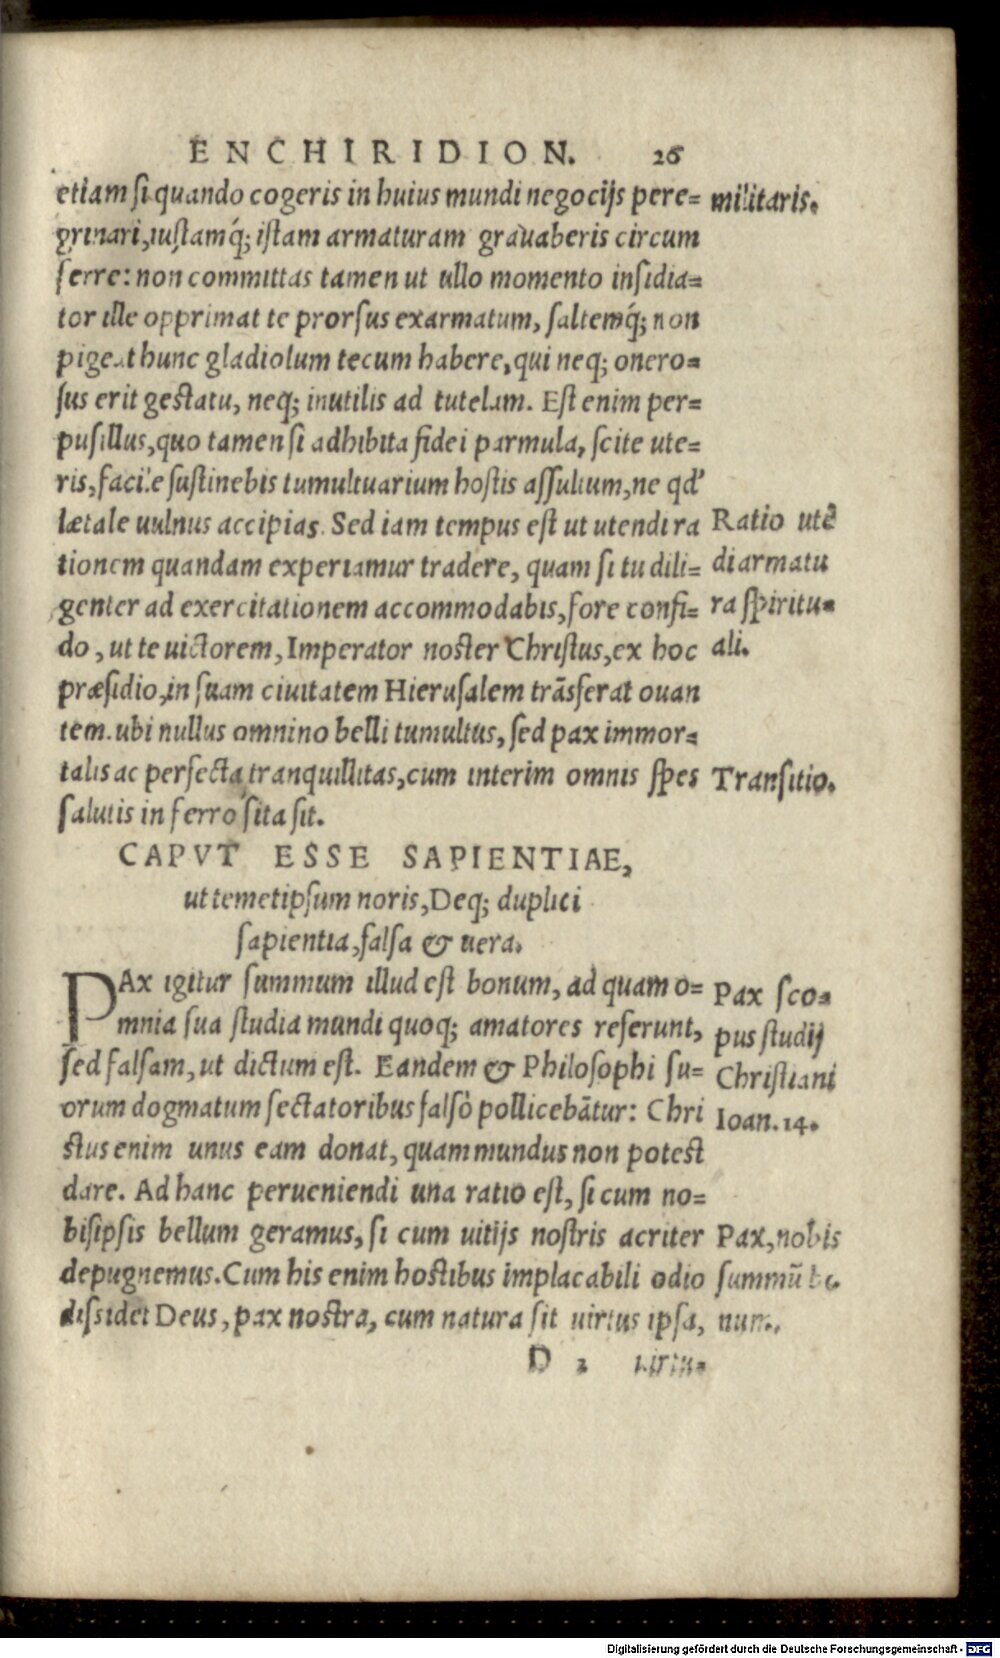 ENCHIRIDION. 26
etiam si quando cogeris in huius mundi negocijs pere=
grinari, iustamq́; istam armaturam grauaberis circum
ferre: non committas tamen ut ullo momento insidia=
tor ille opprimat te prorsus exarmatum, saltemq́; non
pigeat hunc gladiolum tecum habere, qui neq; onero=
sus erit gestatu, neq; inutilis ad tutelam. Est enim per=
pusillus, quo tamen si adhibita fidei parmula, scite ute=
ris, facile sustinebis tumultuarium hostis assultum, ne qd'
lætale uulnus accipias. Sed iam tempus est ut utendi ra
tionem quandam experiamur tradere, quam si tu dili=
genter ad exercitationem accommodabis, fore confi=
do, ut te uictorem, Imperator noster Christus, ex hoc
præsidio, in suam ciuitatem Hierusalem trāsferat ouan
tem. ubi nullus omnino belli tumultus, sed pax immor=
talis ac perfecta tranquillitas, cum interim omnis spes
salutis in ferro sita sit.
militaris.
Ratio utē
di armatu
ra spiritu=
ali.
Transitio.
CAPVT ESSE SAPIENTIAE,
ut temetipsum noris, Deq; duplici
sapientia, falsa & uera.
PAx igitur summum illud est bonum, ad quam o=
mnia sua studia mundi quoq; amatores referunt,
sed falsam, ut dictum est. Eandem & Philosophi su=
orum dogmatum sectatoribus falsò pollicebātur: Chri
stus enim unus eam donat, quam mundus non potest
dare. Ad hanc perueniendi una ratio est, si cum no=
bisipsis bellum geramus, si cum uitijs nostris acriter
depugnemus. Cum his enim hostibus implacabili odio
dissidet Deus, pax nostra, cum natura sit uirtus ipsa,
Pax sco=
pus studij
Christiani
Ioan. 14.
Pax, nobis
summū bo
num.
D 2 uirtu=
Digitalisierung gefördert durch die Deutsche Forschungsgemeinschaft - DFG